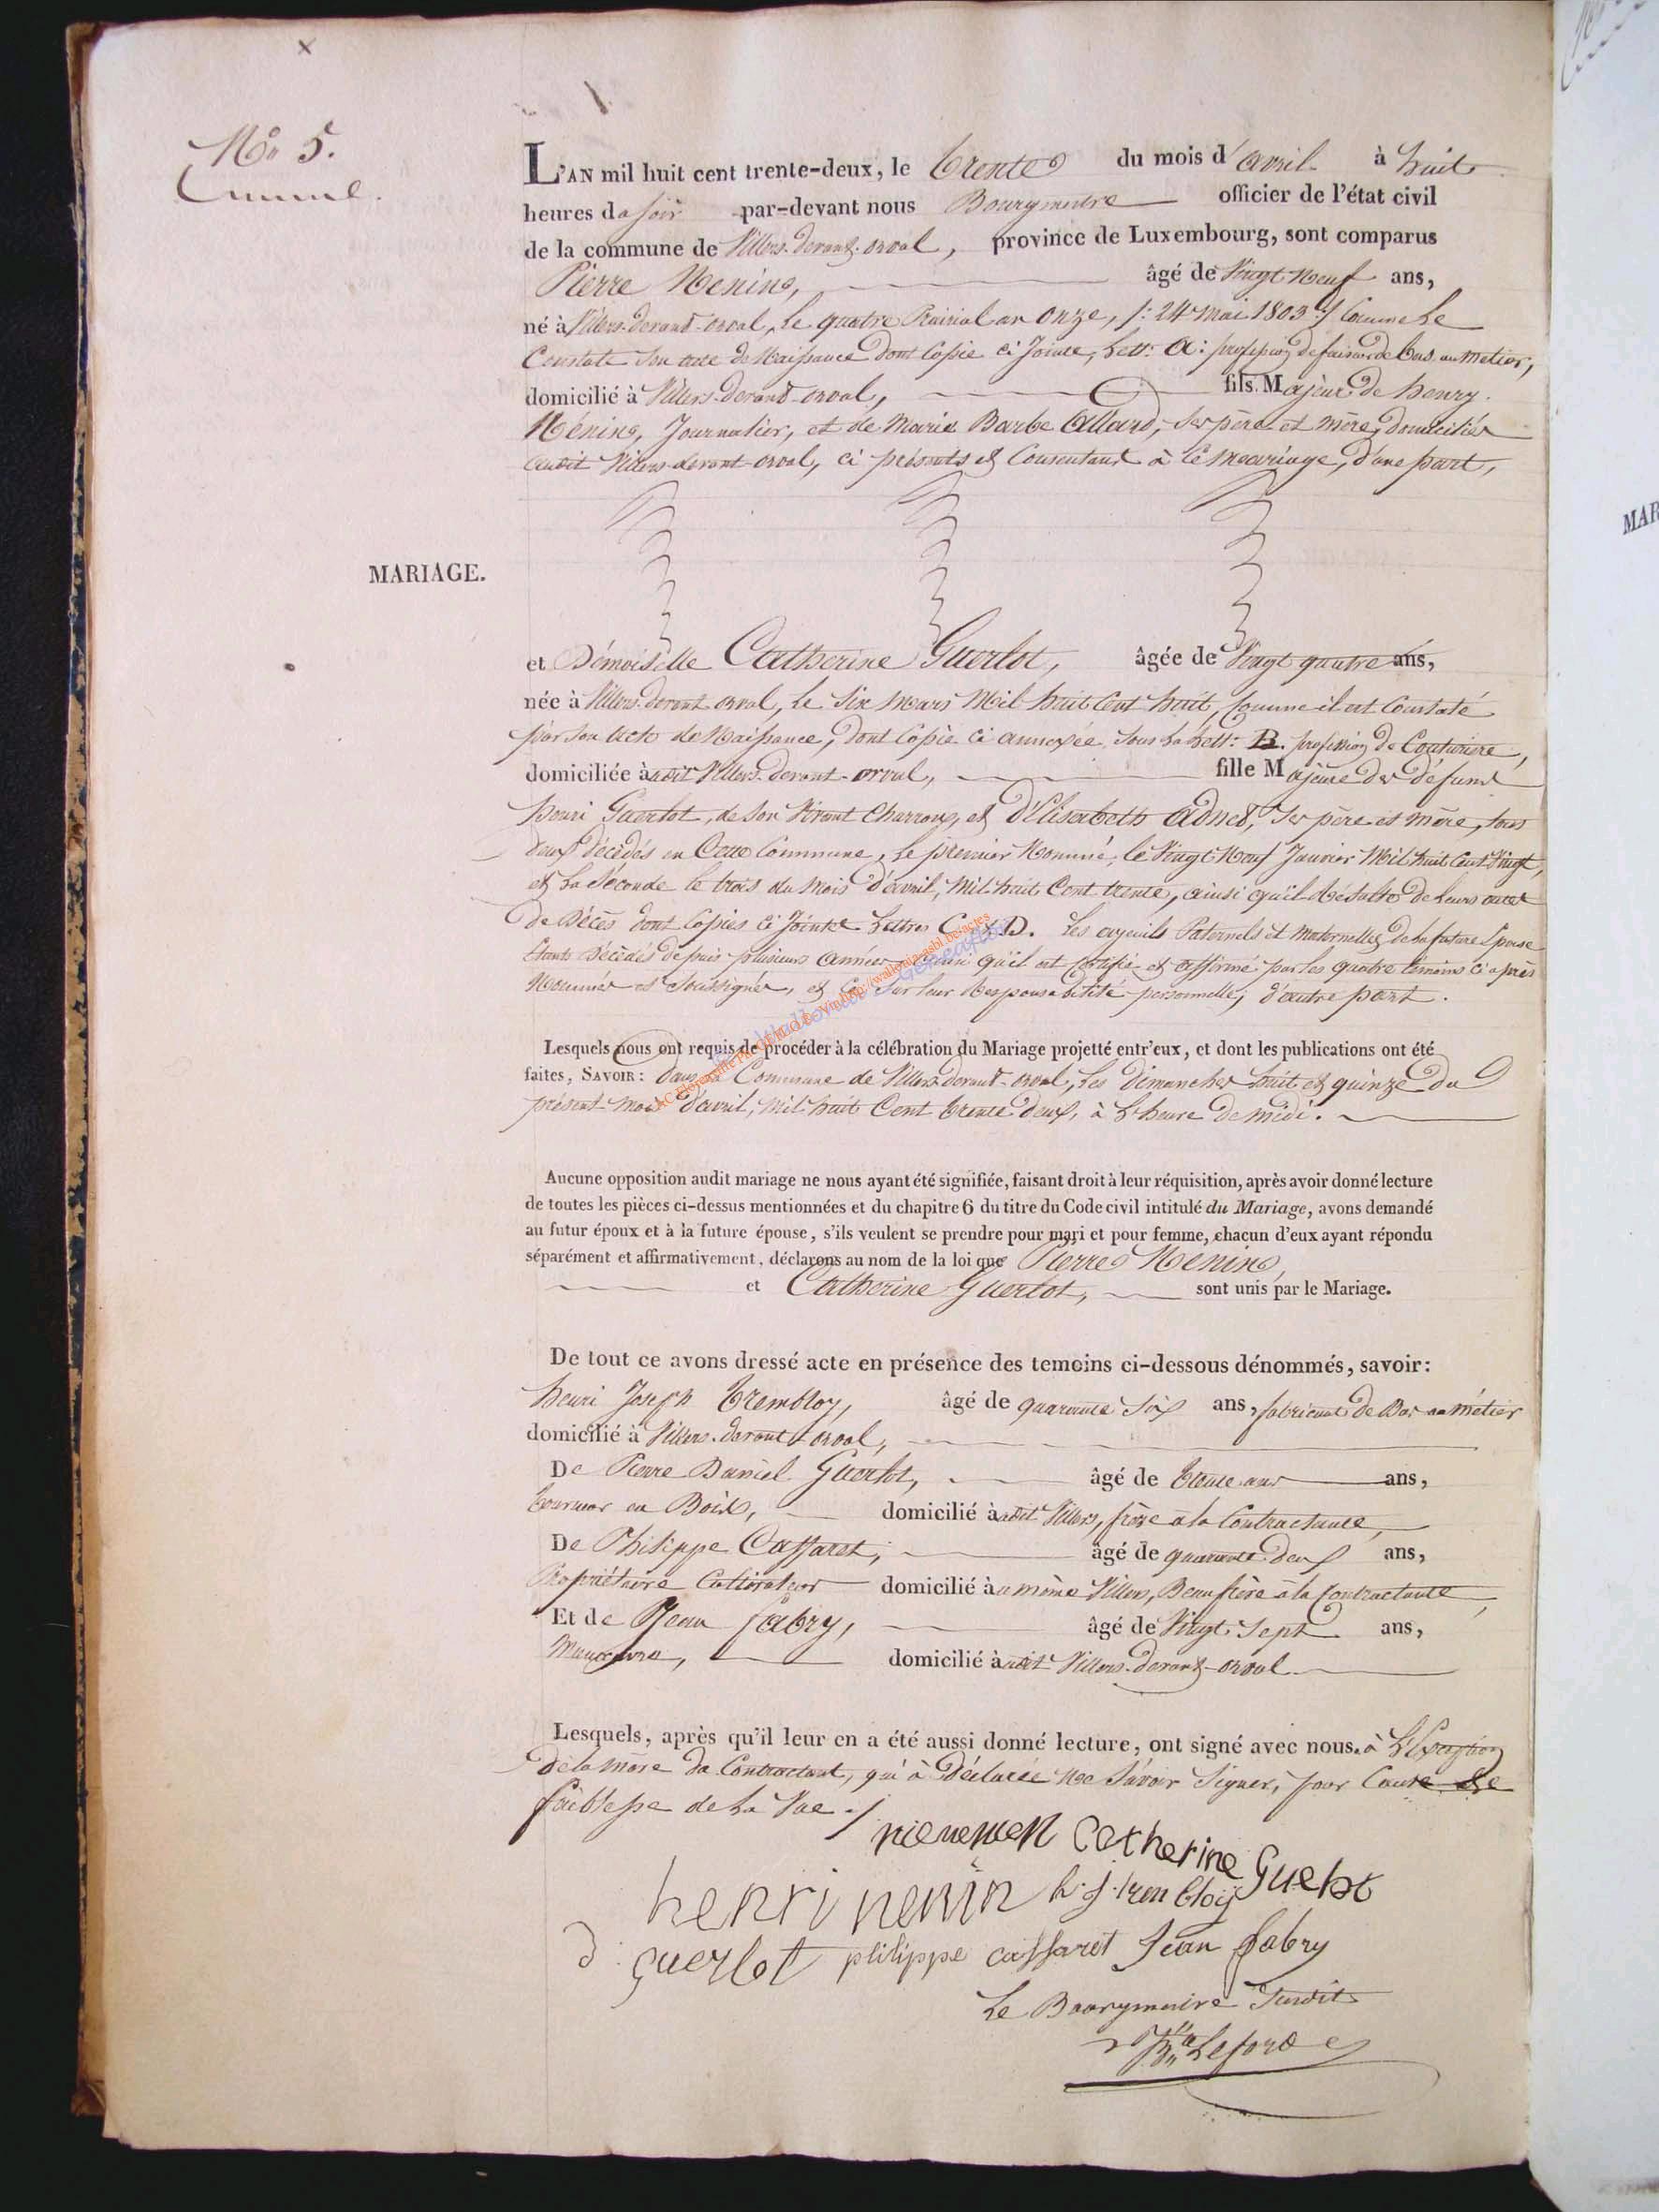 No 5.
L'AN mil huit cent trente-deux, le trente du mois d'avril à huit
heures du soir par-devant nous Bourgmestre officier de l'état civil
de la commune de Villers-devant-orval, province de Luxembourg, sont comparus
Pierre Nenin, âgé de Vingt Neuf ans,
né à Villers-devant-orval, le quatre Prairial an onze, /: 24 mai 1803 :/ Comme le
Constate son acte de Naissance dont Copie ci Jointe, Lett: A: profession de faiseur de bas au métier,
domicilié à Villers-devant-orval, fils Majeur de henry
Nénin, Journalier, et de Marie Barbe Allard, ses père et mère, domiciliés
audit Villers-devant-orval, ci présents et Consentant à ce mariage, d'une part,
MARIAGE.
et Démoiselle Catherine Guerlot, âgée de Vingt quatre ans,
née à Villers-devant-orval, le Six Mars Mil huit Cent huit, Comme il est Constaté
par son Acte de Naissance, dont Copie ci annexée sous la Lett: B. profession de Couturière,
domiciliée audit Villers-devant-orval, fille Majeure des défunts
henri Guerlot, de son Vivant Charron, et d'Elisabeth Adnet, ses père et mère, tous
deux décédés en Cette Commune, le premier Nommé, le Vingt Neuf Janvier Mil huit Cent Vingt,
et la Séconde le trois du mois d'avril, mil huit Cent trente, ainsi qu'il Résulte de leurs actes
de Décès dont Copies ci Jointes Lettres C et D. Les ayeuils Paternels et Maternelles de la future Epouse
étants Décédés depuis plusieurs années ainsi qu'il est Certifié et affirmé par les quatre témoins ci après
Nommés et Soussignés, et Ce sur leur Responsabilité personnelle, d'autre part.
Lesquels nous ont requis de procéder à la célébration du Mariage projetté entr'eux, et dont les publications ont été
faites, SAVOIR: dans la Commune de Villers-devant-orval, les dimanches huit et quinze du
présent mois d'avril, mil huit Cent trente deux, à L'heure de midi.
Aucune opposition audit mariage ne nous ayant été signifiée, faisant droit à leur réquisition, après avoir donné lecture
de toutes les pièces ci-dessus mentionnées et du chapitre 6 du titre du Code civil intitulé du Mariage, avons demandé
au futur époux et à la future épouse, s'ils veulent se prendre pour mari et pour femme, chacun d'eux ayant répondu
séparément et affirmativement, déclarons au nom de la loi que Pierre Nenin,
et Catherine Guerlot, sont unis par le Mariage.
De tout ce avons dressé acte en présence des temoins ci-dessous dénommés, savoir:
henri Joseph Trembloy, âgé de quarante Six ans, fabricant de Bas au métier
domicilié à Villers-devant-orval,
De Pierre Daniel Guerlot, âgé de trente ans ans,
tourneur en Bois, domicilié audit Villers, frère à la Contractante,
De Philippe Caffaret, âgé de quarante deux ans,
Propriétaire Cultivateur domicilié au même Villers, Beau frère à la Contractante,
Et de Jean fabry, âgé de Vingt Sept ans,
Manœuvre, domicilié audit Villers-devant-orval
Lesquels, après qu'il leur en a été aussi donné lecture, ont signé avec nous. à L'Exception
de la mère du Contractant, qui à Déclarée Ne Sávoir Signer, pour Cause de
faiblesse de la Vue ./
Catherine Guelot
henri nenin h. j. trembloy
d. guerlot philippe caffaret Jean fabry
Le Bourgmaire Susdit